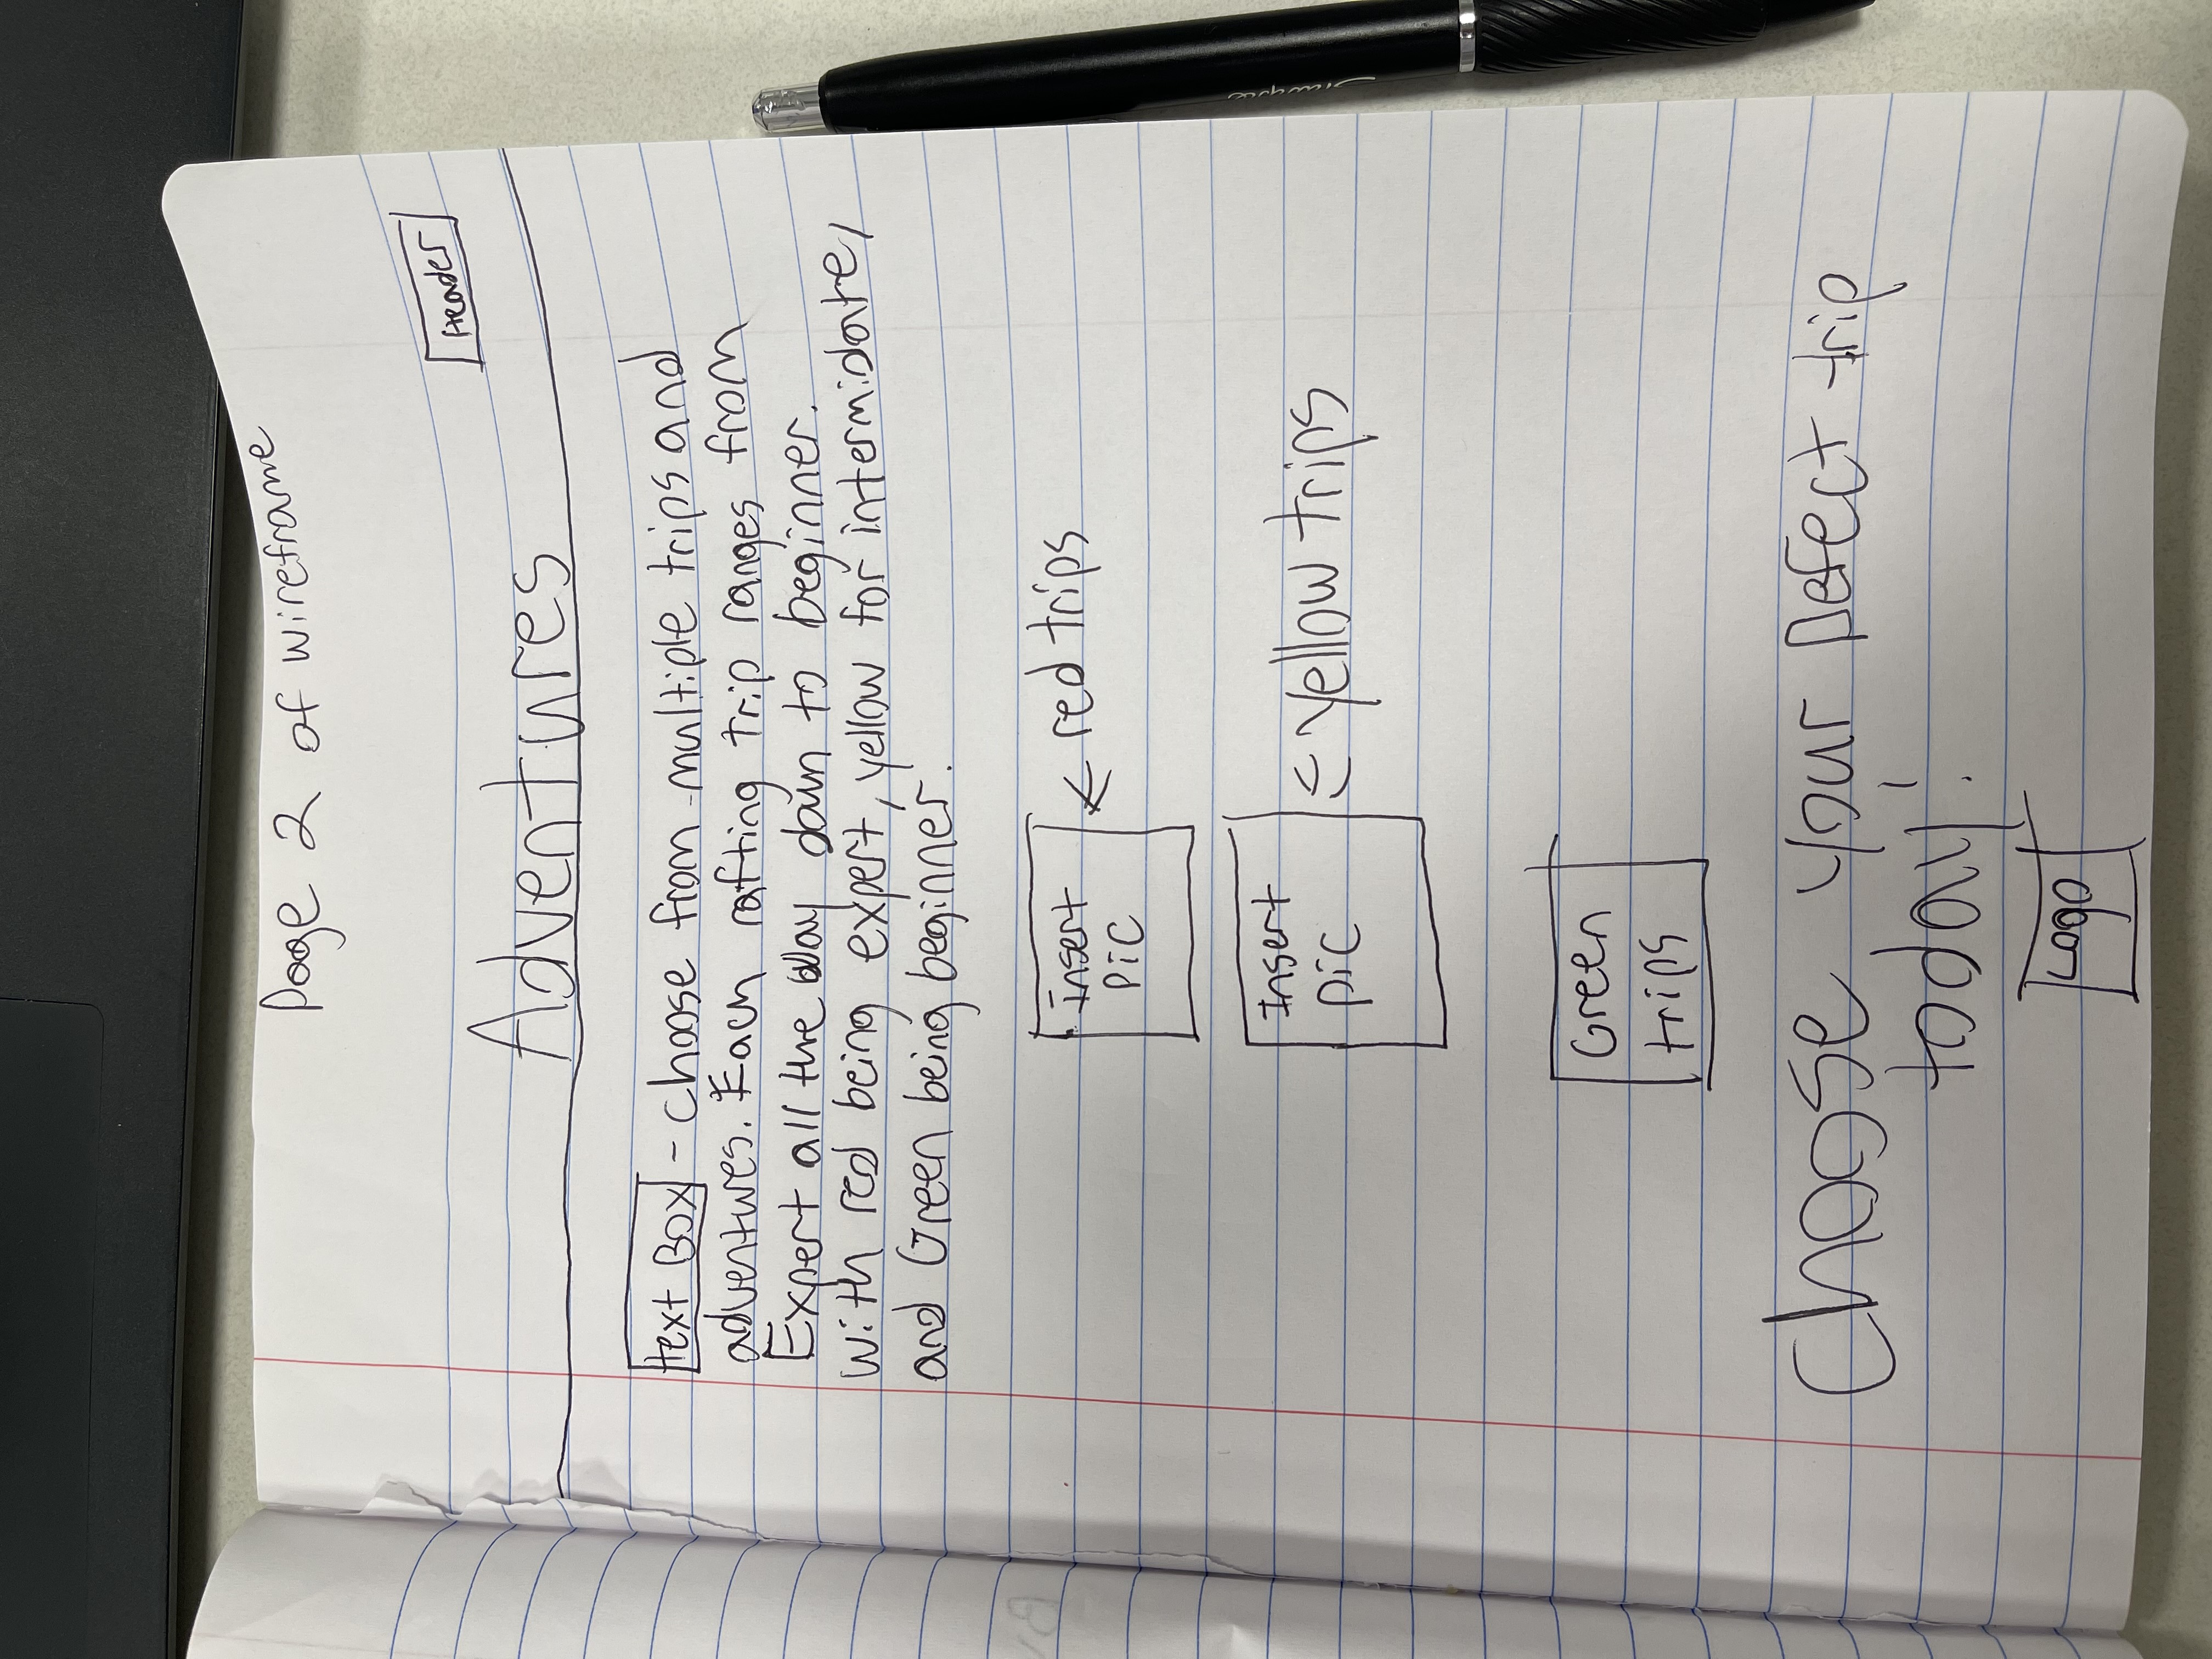 Page 2 of wireframe
Header
Adventures
text Box - choose from multiple trips and
adventures. Each rafting trip ranges from
Expert all the way down to beginner.
with red being expert, yellow for intermidate,
and Green being beginner.
Insert
Pic
← red trips
Insert
pic
← yellow trips
Green
trips
Choose your Pefect trip
today!
Logo